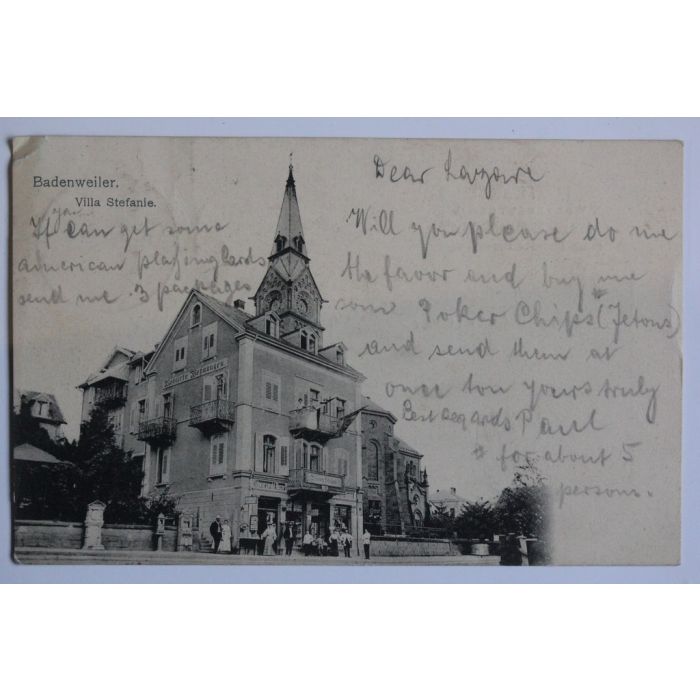 Badenweiler.
Villa Stefanie.
Dear Lazare
Will you please do me
the favor and buy me
som Poker Chips * (Jetons)
and send them at
once to yours truly
Best regards Paul
* for about 5
persons.
If you can get some
american playing Cards
send me 3 packages
Möblierte Wohnungen